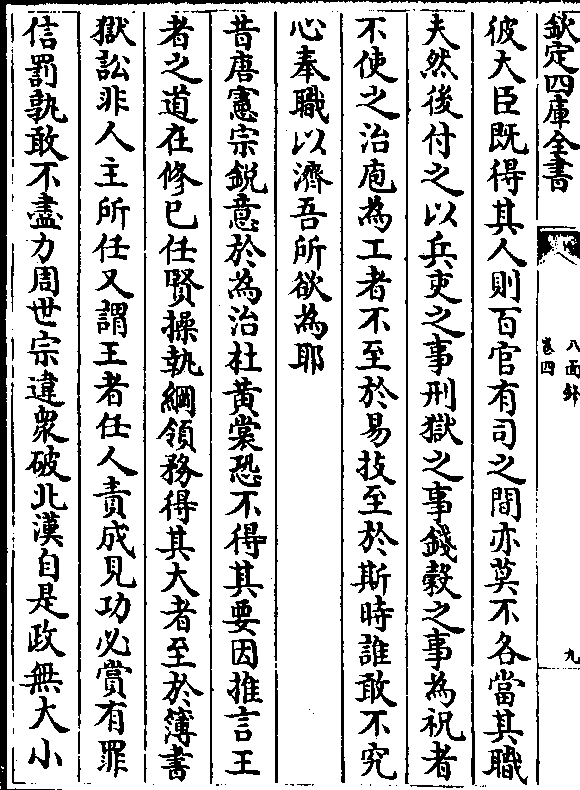 欽定四庫全書
八面鋒
卷四
九
彼大臣既得其人則百官有司之間亦莫不各當其職
夫然後付之以兵吏之事刑獄之事錢穀之事為祝者
不使之治庖為工者不至於易技至於斯時誰敢不究
心奉職以濟吾所欲為耶
昔唐憲宗鋭意於為治杜黄裳恐不得其要因推言王
者之道在修已任賢操執綱領務得其大者至於簿書
獄訟非人主所任又謂王者任人責成見功必賞有罪
信罰孰敢不盡力周世宗違衆破北漢自是政無大小